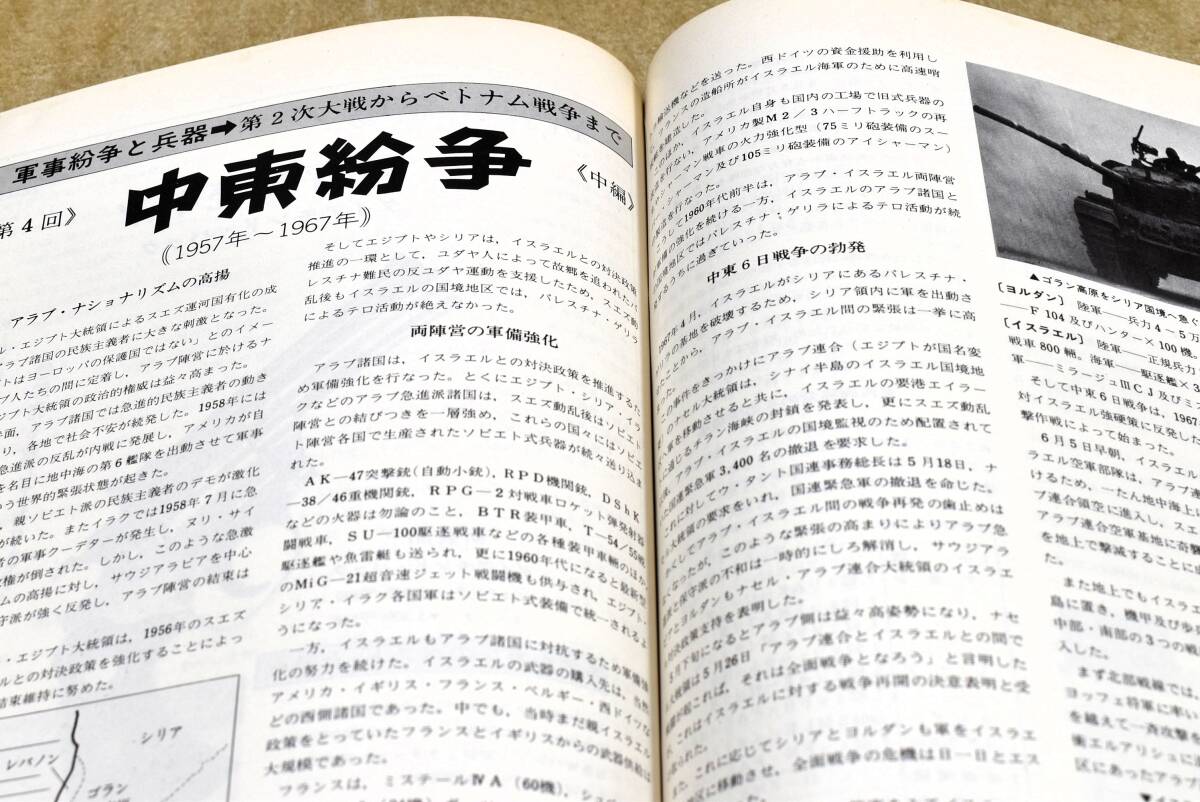 軍事紛争と兵器➡第2次大戦からベトナム戦争まで
第4回》
中東紛争
《中編》
《1957年～1967年》
アラブ・ナショナリズムの高揚
ル・エジプト大統領によるスエズ運河国有化の成
アラブ諸国の民族主義者に大きな刺激となった。
トはヨーロッパの保護国ではない」とのイメー
ブ人たちの間に定着し，アラブ陣営に於けるナ
ジプト大統領の政治的権威は益々高まった。
半面，アラブ諸国では急進的民族主義者の動き
り，各地で社会不安が続発した。1958年には
急進派の反乱が内戦に発展し，アメリカが自
を名目に地中海の第6艦隊を出動させて軍事
う世界的緊張状態が起きた。
，親ソビエト派の民族主義者のデモが激化
が続いた。またイラクでは1958年7月に急
者の軍事クーデターが発生し，ヌリ・サイ
政権が倒された。しかし，このような急激
ムの高揚に対し，サウジアラビアを中心
守派が強く反発し，アラブ陣営の結束は
・エジプト大統領は，1956年のスエズ
ルとの対決政策を強化することによっ
結束維持に努めた。
シリア
レバノン
ゴラン
そしてエジプトやシリアは，イスラエルとの対決政策
推進の一環として，ユダヤ人によって故郷を追われたパ
レスチナ難民の反ユダヤ運動を支援したため，スエズ動
乱後もイスラエルの国境地区では，パレスチナ・ゲリラ
によるテロ活動が絶えなかった。
両陣営の軍備強化
アラブ諸国は，イスラエルとの対決政策を推進するた
め軍備強化を行なった。とくにエジプト・シリア・イラ
クなどのアラブ急進派諸国は，スエズ動乱後はソビエト
陣営との結びつきを一層強め，これらの国々にはソビエ
ト陣営各国で生産されたソビエト式兵器が続々送り込ま
れた。
AK－47突撃銃(自動小銃)，RPD機関銃，DShK
－38／46重機関銃，RPG－2対戦車ロケット弾発射器
などの火器は勿論のこと，BTR装甲車，T－54／55戦
闘戦車，SU－100駆逐戦車などの各種装甲車輛のほか
駆逐艦や魚雷艇も送られ，更に1960年代になると最新型
のMiG－21超音速ジェット戦闘機も供与され，エジプト・
シリア・イラク各国軍はソビエト式装備で統一されるよ
うになった。
一方，イスラエルもアラブ諸国に対抗するため軍備強
化の努力を続けた。イスラエルの武器の購入先は，当時
アメリカ・イギリス・フランス・ベルギー・西ドイツな
どの西側諸国であった。中でも，当時まだ親イスラエル
政策をとっていたフランスとイギリスからの武器供給は
大規模であった。
フランスは，ミステールⅣA（60機），シュペ
輸送機などを送った。西ドイツの資金援助を利用し
フランスの造船所がイスラエル海軍のために高速哨
を建造した。
このほか，イスラエル自身も国内の工場で旧式兵器の
を行ない，アメリカ製M2／3ハーフトラックの再
シャーマン戦車の火力強化型（75ミリ砲装備のスー
シャーマン及び105ミリ砲装備のアイシャーマン）
を行なった。
こうして1960年代前半は，アラブ・イスラエル両陣営
の強化を続ける一方，イスラエルのアラブ諸国と
境地区ではパレスチナ・ゲリラによるテロ活動が続
うちに過ぎていった。
中東6日戦争の勃発
1967年4月，イスラエルがシリアにあるパレスチナ・
ラの基地を破壊するため，シリア領内に軍を出動さ
ことから，アラブ・イスラエル間の緊張は一挙に高
の事件をきっかけにアラブ連合（エジプトが国名変
のナセル大統領は，シナイ半島のイスラエル国境地
を移動させると共に，イスラエルの要港エイラー
通じるチラン海峡の封鎖を発表し，更にスエズ動乱
アラブ・イスラエルの国境監視のため配置されて
国連緊急軍3,400名の撤退を要求した。
れに対してウ・タント国連事務総長は5月18日，ナ
大統領の要求をいれ，国連緊急軍の撤退を命じた。
くしてアラブ・イスラエル間の戦争再発の歯止めは
なったが，このような緊張の高まりによりアラブ急
と保守派の不和は一時的にしろ解消し，サウジアラ
アとヨルダンもナセル・アラブ連合大統領のイスラエ
対決政策支持を表明した。
5月下旬になるとアラブ側は益々高姿勢になり，ナセ
大統領は5月26日「アラブ連合とイスラエルとの間で
が起これば，それは全面戦争となろう」と言明した
，これはイスラエルに対する戦争再開の決意表明と受
られた。
た，これに応じてシリアとヨルダンも軍をイスラエ
区に移動させ，全面戦争の危機は日一日とエス
▲ゴラン高原をシリア国境へ急ぐ
［ヨルダン］ 陸軍──兵力4～5万
──F104及びハンター×100機。
［イスラエル］ 陸軍──正規兵力
戦車800輛。海軍──駆逐艦×
軍──ミラージュⅢCJ及びミ
そして中東6日戦争は，1967
対イスラエル強硬策に反発した
撃作戦によって始まった。
6月5日早朝，イスラエル
ラエル空軍部隊は，エジプ
けるため，一たん地中海上
ブ連合領空に進入し，スエ
アラブ連合空軍基地に奇
を地上で撃滅することに
また地上でもイスラエ
島に置き，機甲及び歩
中部・南部の3つの戦
入した。
まず北部戦線では，
ヨッフェ将軍に率い
を越えて一斉攻撃
衝エルアリシュに
区にあったアラブ